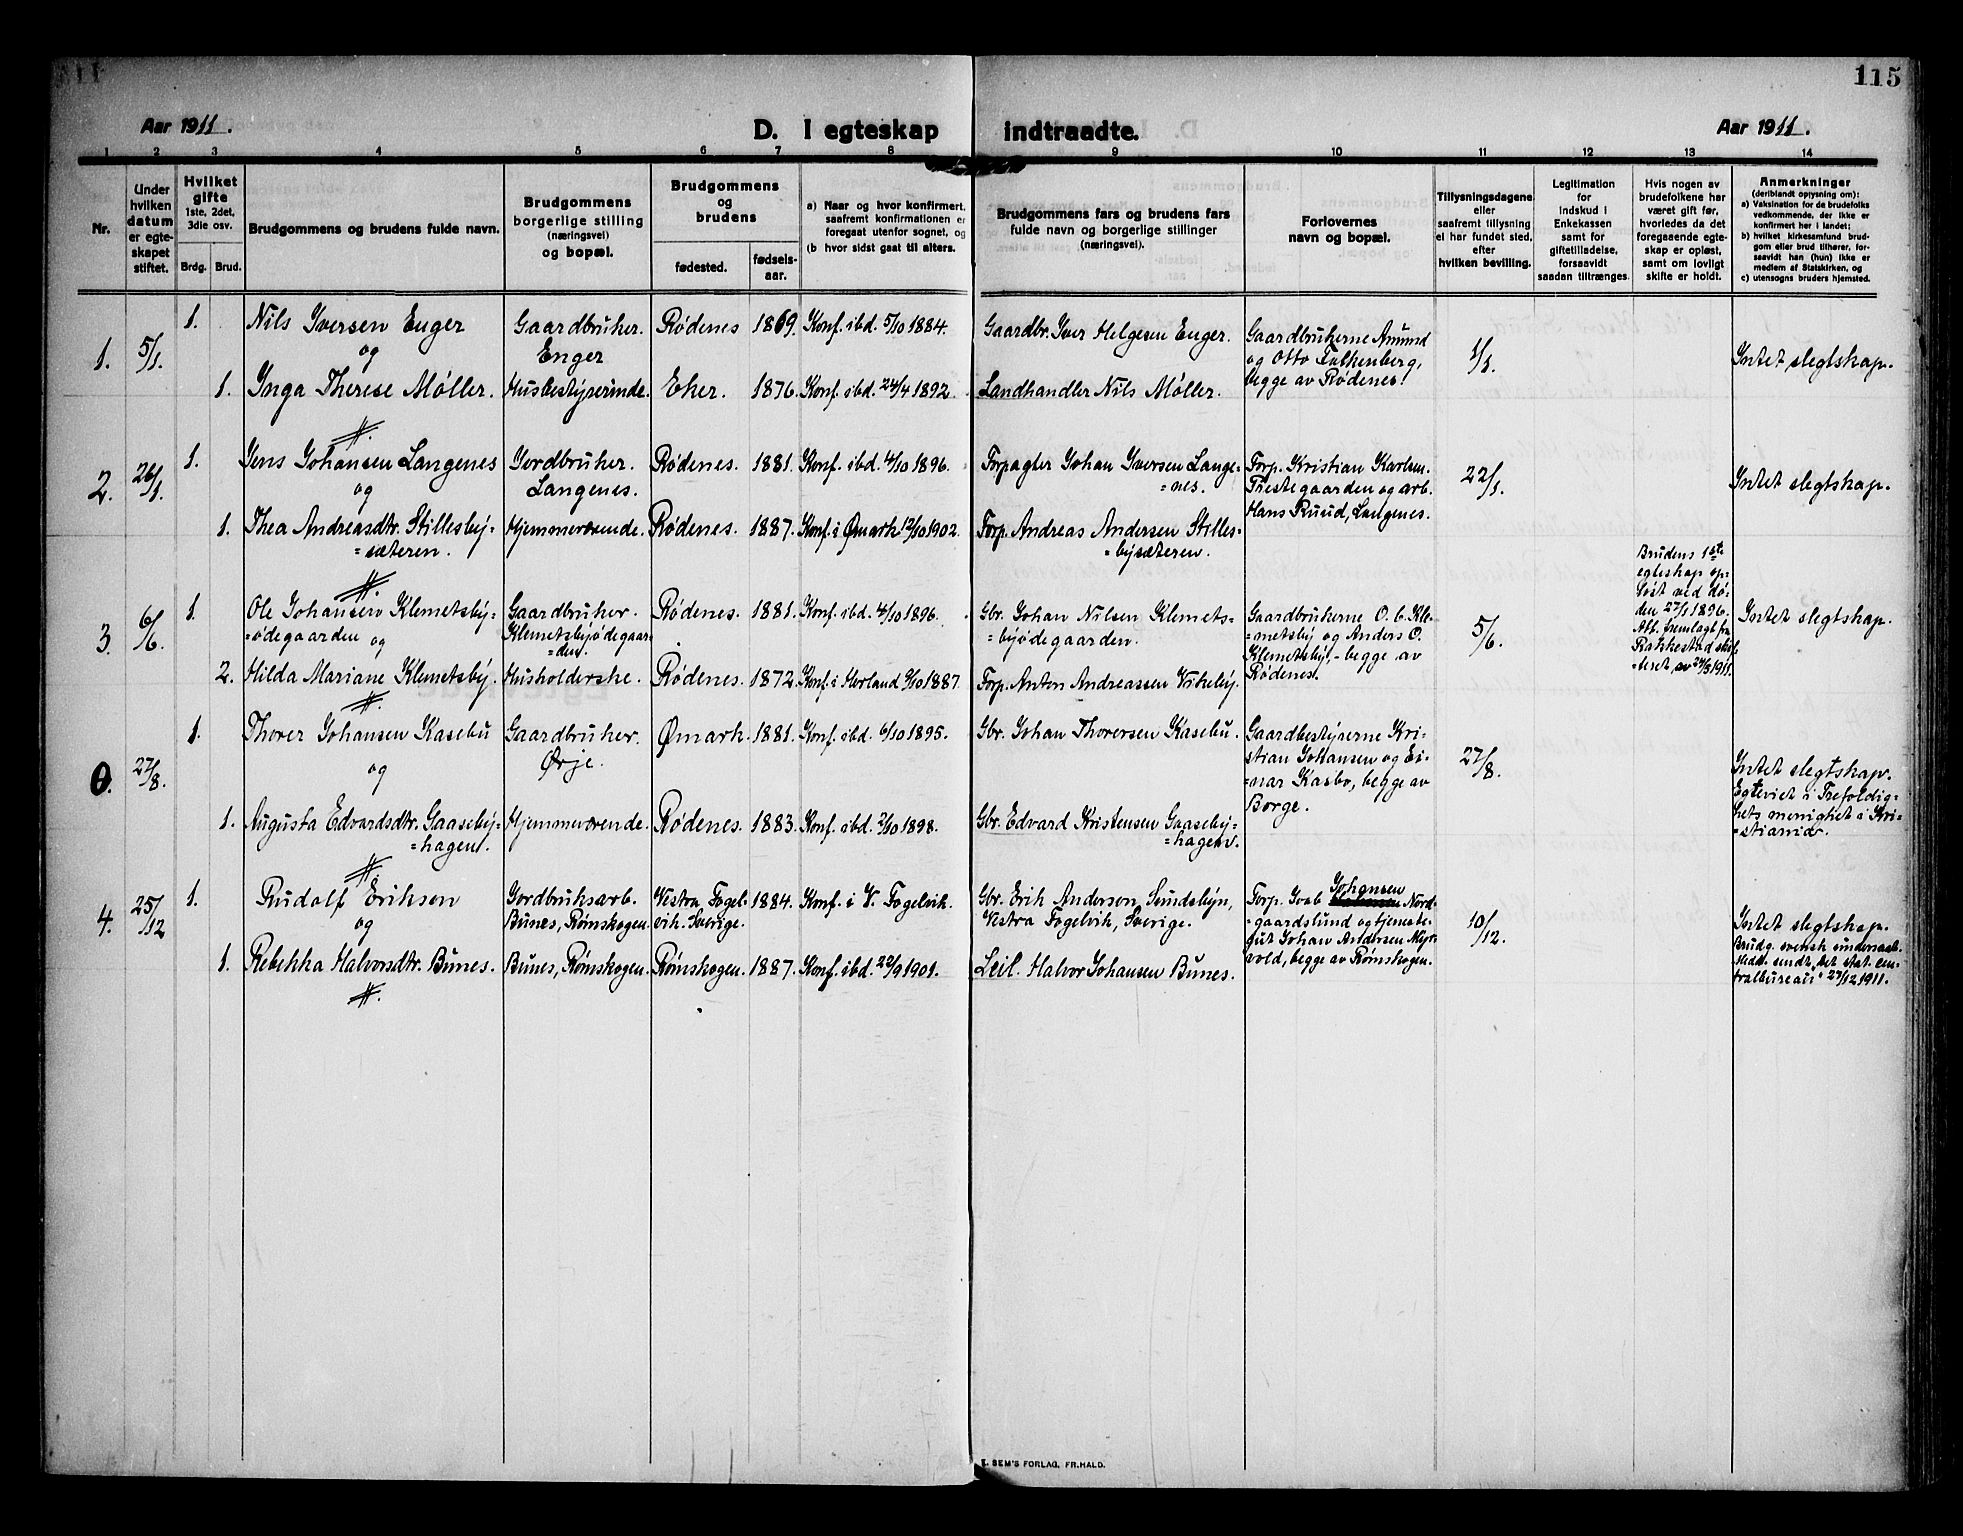 115
Aar 1911.
D. I egteskap indtraadte.
Aar 1911.
1 2 3 4 5 6 7 8 9 10 11 12 13 14
Nr.
Under
hvilken
datum
er egte-
skapet
stiftet.
Hvilket
gifte
1ste, 2det,
3die osv.
Brdg. Brud.
Brudgommens og brudens fulde navn.
Brudgommens
borgerlige stilling
(næringsvei)
og bopæl.
Brudgommens
og
brudens
fødested.
fødsels-
aar.
a) Naar og hvor konfirmert,
saafremt konfirmationen er
foregaat utenfor sognet, og
(b hvor sidst gaat til alters.
Brudgommens fars og brudens fars
fulde navn og borgerlige stillinger
(næringsvei).
Forlovernes
navn og bopæl.
Tillysningsdagene
eller
saafremt tillysning
ei har fundet sted,
efter
hvilken bevilling.
Legitimation
for
indskud i
Enkekassen
samt for
giftetilladelse,
forsaavidt
saadan tiltrænges.
Hvis nogen av
brudefolkene har
været gift før,
hvorledes da det
foregaaende egte-
skap er opløst,
samt om lovligt
skifte er holdt.
Anmerkninger
(deriblandt opysning om):
a) Vaksination for de brudefolks
vedkommende, der ikke er
konfirmert her i landet;
b) hvilket kirkesamfund brud-
gom eller brud tilhører, for-
saavidt han (hun) ikke er
medlem af Statskirken, og
c) utensogns bruders hjemsted.
1. 5/1.
1. Nils Iversen Enger
og
Gaardbruker.
Enger
Rødenes 1869. Konf. ibd. 5/10 1884.
Gaardbr. Iver Helgesen Enger.
Gaardbrukerne Amund
og Otto Falkenberg,
begge av Rødenes.
1/1.
Intet slegtskap.
1. Inga Therese Møller.
Husbestyrerinde.
Eker. 1876. Konf. ibd. 24/4 1892.
Landhandler Nils Møller.
2. 26/1.
1. Jens Johansen Langenes
og
Jordbruker.
Langenes.
Rødenes. 1881. Konf. ibd. 4/10 1896.
Forpagter Johan Iversen Lange-
=nes.
Forp. Kristian Karlsen.
Prestegaarden og arb.
Hans Ruud, Langenes.
22/1.
Intet slegtskap.
1. Thea Andreasdtr. Stillesby-
=sæteren.
Hjemmeværende. Rødenes. 1887. Konf. i Ømark 12/10 1902.
Forp. Andreas Andersen Stilles-
=bysæteren.
3. 6/6.
1. Ole Johansen Klemetsby-
=ødegaarden og
Gaardbruker.
Klemetsbyødegaar-
=den.
Rødenes. 1881. Konf. ibd. 4/10 1896.
Gbr. Johan Nilsen Klemets-
=byødegaarden.
Gaardbrukerne O. C. Kle-
=metsby og Anders O.
Klemetsby, - begge av
Rødenes.
5/6.
Brudens 1ste
egteskap op-
løst ved dø-
den 27/1 1896.
Att. fremlagt fra
Rakkestad skif-
teret av 24/5 1911.
Intet slegtskap.
2. Hilda Mariane Klemetsby.
Husholderske. Rødenes. 1872. Konf. i Herland 9/10 1887.
Forp. Anton Andreassen Vikeby.
0. 27/8.
1. Thorer Johansen Kasebu
og
Gaardbruker.
Ørje.
Ømark. 1881. Konf. ibd. 6/10 1895.
Gbr. Johan Thorersen Kasebu.
Gaardbestyrerne Kri-
stian Johansen og Ei-
=nar Kasbo, begge av
Borge.
27/8.
Intet slegtskap.
Egteviet i Trefoldig-
hets menighet i Kri-
=stiania.
1. Augusta Edvardsdtr. Gaaseby-
=hagen.
Hjemmeværende. Rødenes. 1883. Konf. ibd. 2/10 1898.
Gbr. Edvard Kristensen Gaaseby-
=hagen.
4. 25/12
1. Rudolf Eriksen
og
Jordbruksarb.
Bunes, Rømskogen.
Vestra Fogel-
vik. Sverige.
1884. Konf. i V. Fogelvik.
Gbr. Erik Anderson Sundsbyn,
Vestra Fogelvik, Sverige.
Forp. Joab Johansen Nord-
=gaardslund og tjeneste-
gut Johan Andersen Myr-
vold, begge av Rømskogen.
10/12.
Intet slegtskap.
Brudg. svensk undersaat.
Medd. sendt "Det stat. cen-
tralbureau" 27/12 1911.
1. Rebekka Halvorsdtr. Bunes.
Bunes, Rømskogen. Rømskogen. 1887. Konf. ibd. 22/9 1901.
Leil. Halvor Johansen Bunes.
E. SEM'S FORLAG, FR.HALD.